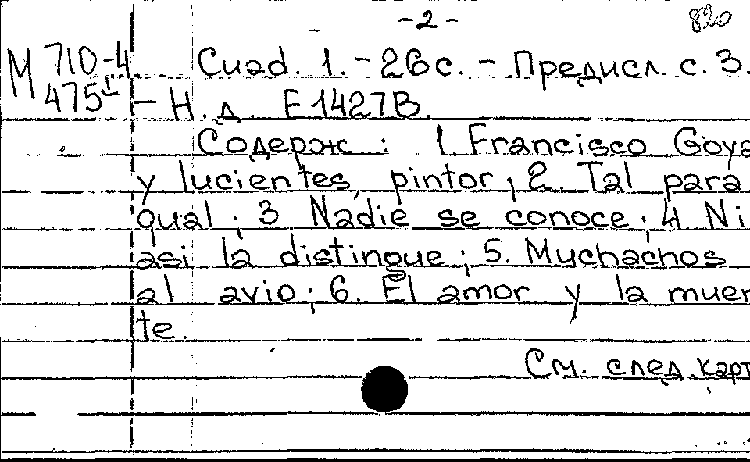 -2-
820
М 710-4
475-1
Cuad. 1. - 26с. - Предисл. с. 3.
- Н. д. E 1427B.
Содерж: 1. Francisco Goya
y lucientes, pintor; 2. Tal para
qual; 3 Nadie se conoce; 4 Ni
asi la distingue; 5. Muchachos
al avio; 6. El amor y la muer
te.
См. след. карт